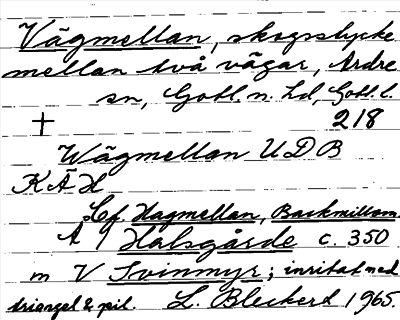 Vägmellan, skogsstycke
mellan två vägar, Ardre
sn, Gotl. n. hd, Gotl. l.
† 218
Wägmellan UDB
KÄH
Cf. Hagmellan, Backmillom
A 9 Halsgårde c. 350
m V Svinmyr; inritat med
triangel & pil. L. Bleckert 1965.